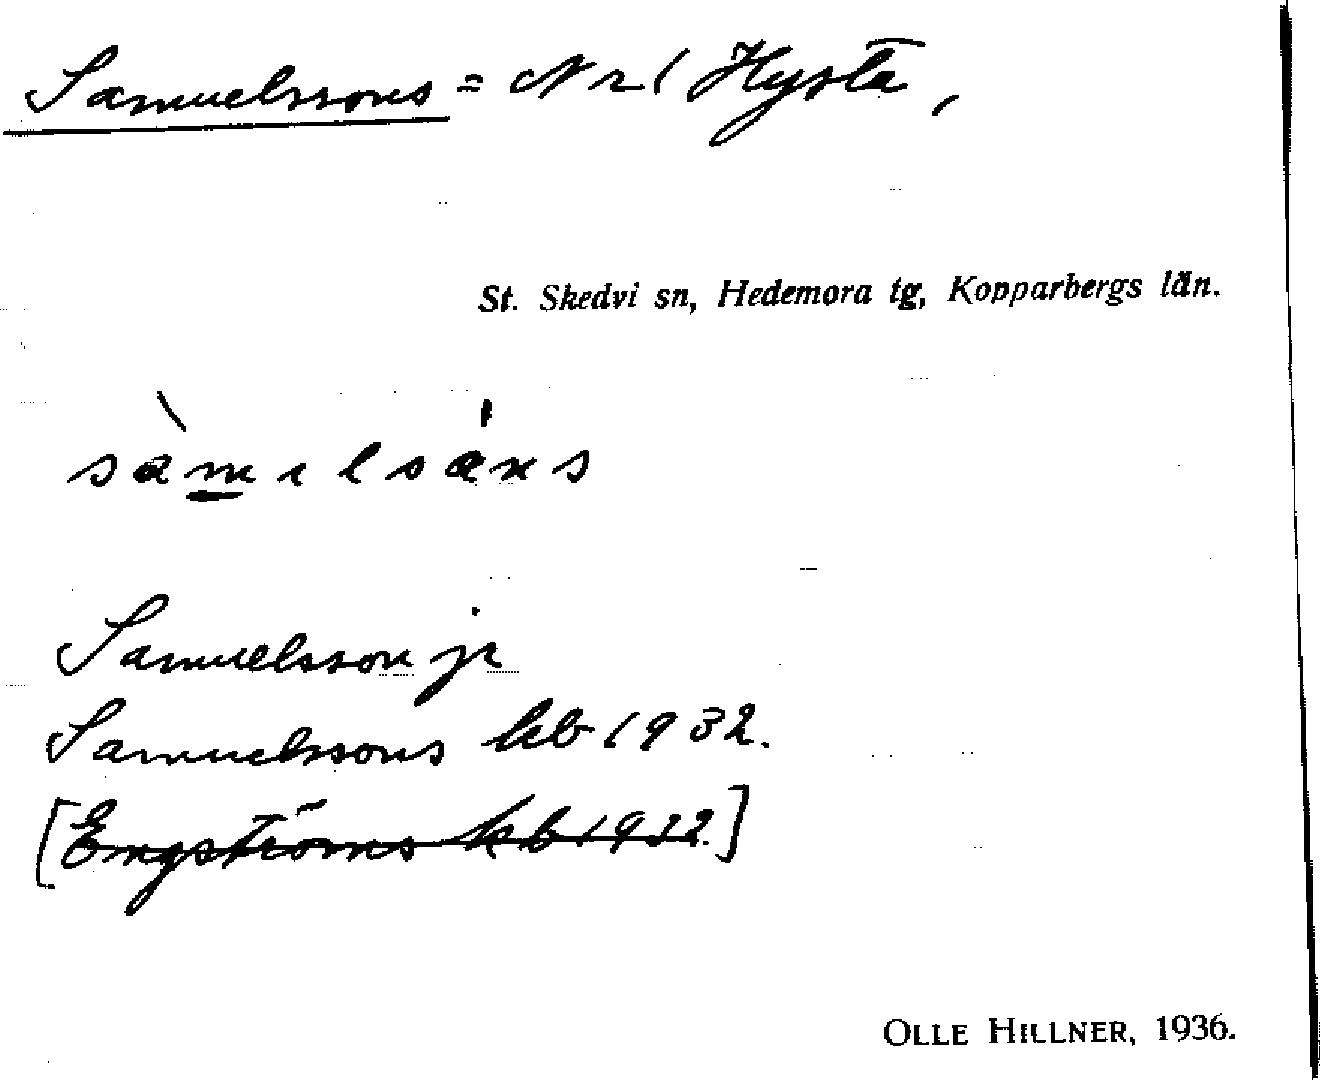 Samuelssons = Nr 1 Hysta,
St. Skedvi sn, Hedemora tg, Kopparbergs län.
sàmılsáns
Samuelsson jr
Samuelssons kb 1932.
[Engströms kb 1932.]
OLLE HILLNER, 1936.